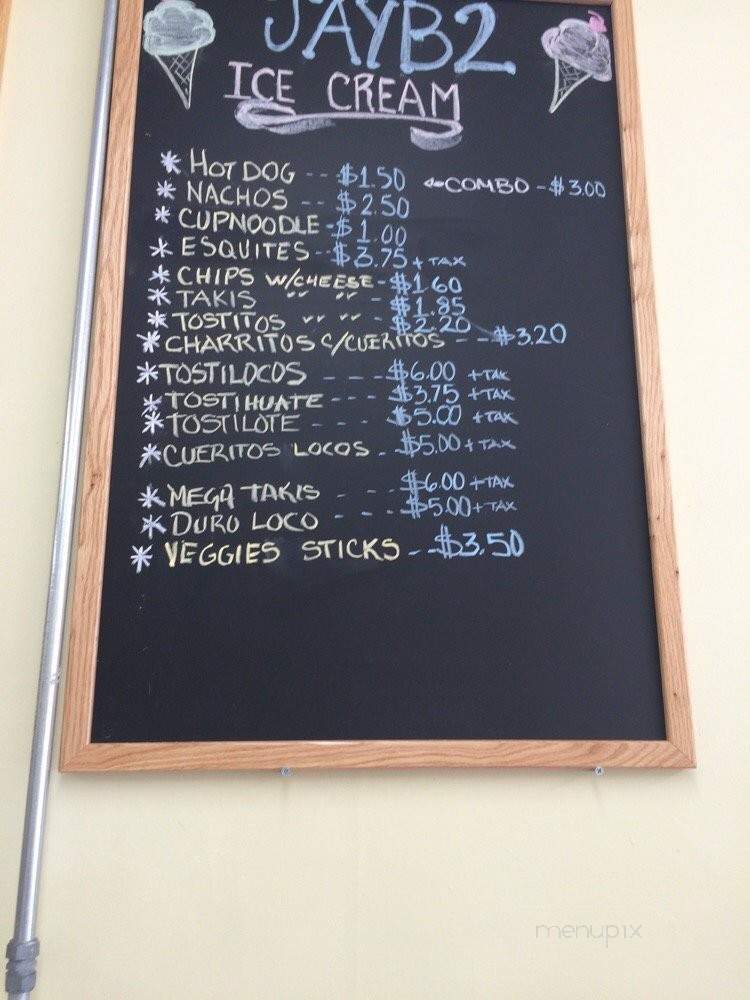 JAYB2
ICE CREAM
* HOT DOG -- $1.50 ←COMBO - $3.00
* NACHOS -- $2.50
* CUPNOODLE - $1.00
* ESQUITES -- $3.75 + TAX
* CHIPS W/CHEESE - $1.60
* TAKIS " " - $1.85
* TOSTITOS " " - $2.20
* CHARRITOS C/CUERITOS -- $3.20
* TOSTILOCOS --- $6.00 +TAX
* TOSTIHUATE --- $3.75 +TAX
* TOSTILOTE --- $5.00 +TAX
* CUERITOS LOCOS - $5.00 +TAX
* MEGA TAKIS --- $6.00 +TAX
* DURO LOCO --- $5.00 +TAX
* VEGGIES STICKS -- $3.50
menupix